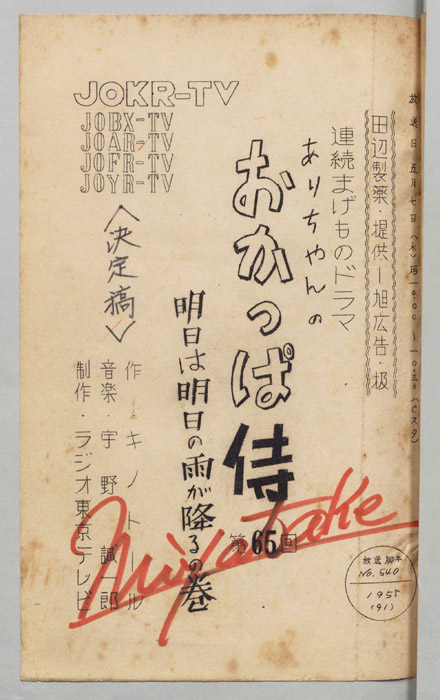 放送日 五月七日(水)后10.00〜10.30(Cスタ)
田辺製薬・提供ー旭広告・扱
連続まげものドラマ
ありちゃんの
おかっぱ侍
第65回
明日は明日の雨が降るの巻
JOKR-TV
JOBX-TV
JOAR-TV
JOFR-TV
JOYR-TV
〈決定稿〉
作・キノトール
音楽・宇野誠一郎
制作・ラジオ東京テレビ
放送脚本
No.540
1958
(91)